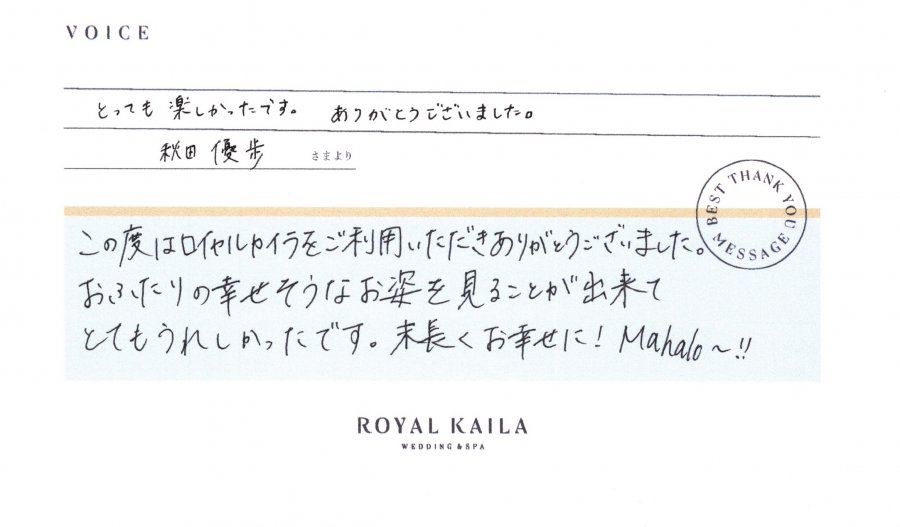 VOICE
とっても楽しかったです。 ありがとうございました。
秋田 優歩 さまより
BEST THANK YOU MESSAGE
この度はロイヤルカイラをご利用いただきありがとうございました。
おふたりの幸せそうなお姿を見ることが出来て
とてもうれしかったです。末長くお幸せに! Mahalo~!!
ROYAL KAILA
WEDDING & SPA